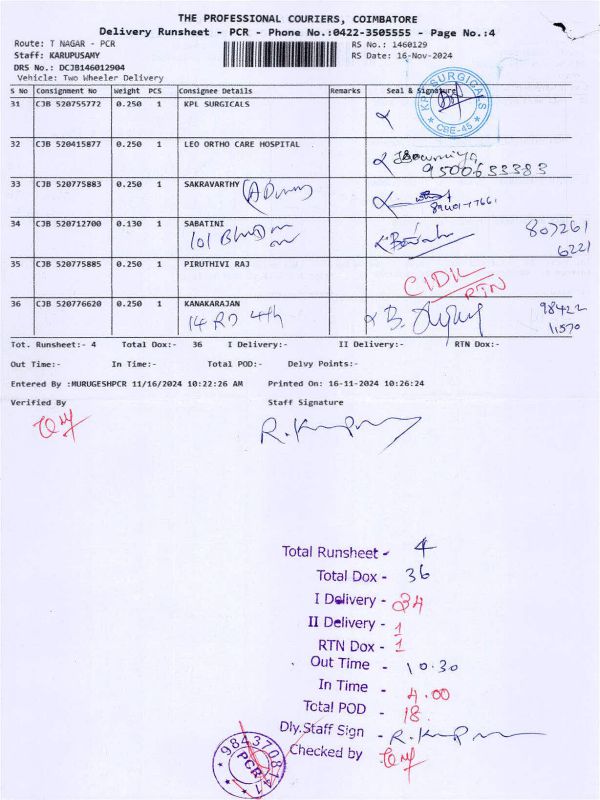 THE PROFESSIONAL COURIERS, COIMBATORE
Delivery Runsheet - PCR - Phone No.:0422-3505555 - Page No.:4
Route: T NAGAR - PCR RS No.: 1460129
Staff: KARUPUSAMY RS Date: 16-Nov-2024
DRS No.: DCJB146012904
Vehicle: Two Wheeler Delivery
S No Consignment No Weight PCS Consignee Details Remarks Seal & Signature
31 CJB 520755772 0.250 1 KPL SURGICALS
KPL SURGICALS
CBE-45
32 CJB 520415877 0.250 1 LEO ORTHO CARE HOSPITAL
Sowmiya
9500633383
33 CJB 520775883 0.250 1 SAKRAVARTHY
34 CJB 520712700 0.130 1 SABATINI
101 807261
6221
35 CJB 520775885 0.250 1 PIRUTHIVI RAJ
RTN
36 CJB 520776620 0.250 1 KANAKARAJAN
14 RD 4th 98422
11570
Tot. Runsheet:- 4 Total Dox:- 36 I Delivery:- II Delivery:- RTN Dox:-
Out Time:- In Time:- Total POD:- Delvy Points:-
Entered By :MURUGESHPCR 11/16/2024 10:22:26 AM Printed On: 16-11-2024 10:26:24
Verified By Staff Signature
Total Runsheet - 4
Total Dox - 36
I Delivery - 34
II Delivery - 1
RTN Dox - 1
Out Time - 10.30
In Time - 4.00
Total POD - 18
Dly.Staff Sign -
Checked by
9843708141
PCR